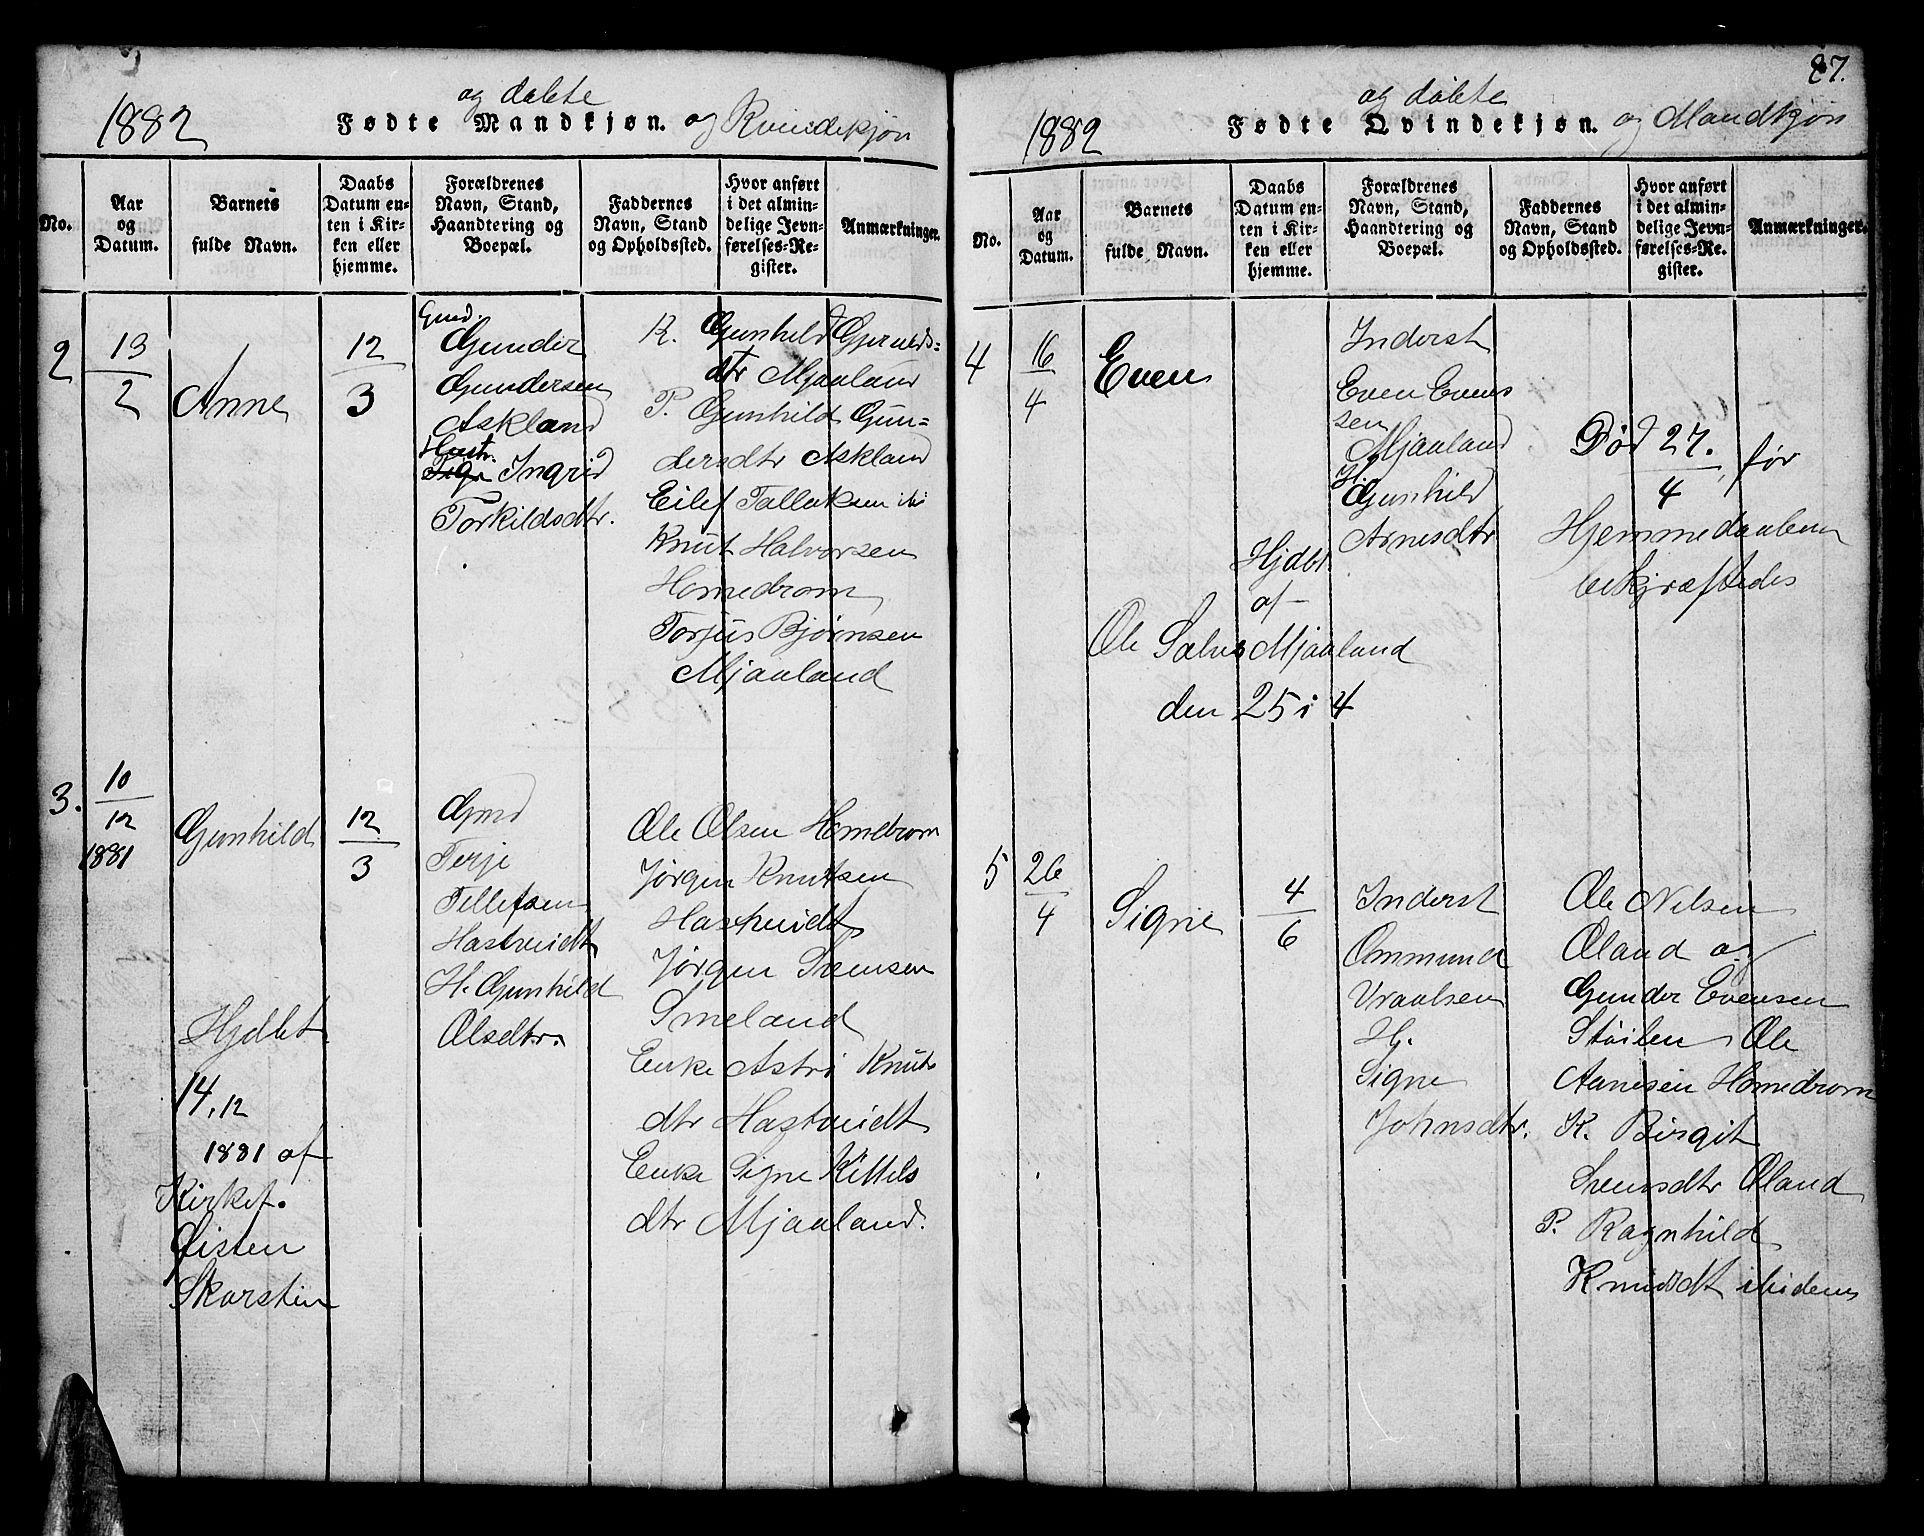 1882
og døbte
Fødte Mandkjøn. og Kvindekjøn
No.
Aar og Datum.
Barnets fulde Navn.
Daabs Datum enten i Kirken eller hjemme.
Forældrenes Navn, Stand, Haandtering og Boepæl.
Faddernes Navn, Stand og Opholdssted.
Hvor anført i det almindelige Jevnførelses-Register.
Anmærkninger.
2
13
2
Anne
12
3
Gmd.
Gunder
Gundersen
Askland
Hustr.
Ingrid
Torkildsdtr.
K. Gunhild Gjerulds-
dtr Mjaaland
P. Gunhild Gun-
dersdtr Askland
Eilef Tallaksen ibi
Knut Halvorsen
Homedrom
Torjus Bjørnsen
Mjaaland
3.
10
12
1881
Gunhild
12
3
Hjdbt
14.12
1881 af
Kirket.
Gisten
Skarsten
Gmd
Terje
Tellefsen
Hastveidt
H. Gunhild
Olsdtr.
Ole Olsen Homedrom
Jørgen Knutsen
Hastveidt
Jørgen Svensen
Smeland
Enke Astri Knuts
dtr Hastveidt
Enke Signe Kittels
dtr Mjaaland.
87.
1882
og døbte
Fødte Qvindekjøn. og Mandkjøn
No.
Aar og Datum.
Barnets fulde Navn.
Daabs Datum enten i Kirken eller hjemme.
Forældrenes Navn, Stand, Haandtering og Boepæl.
Faddernes Navn, Stand og Opholdssted.
Hvor anført i det almindelige Jevnførelses-Register.
Anmærkninger.
4
16
4
Even
Hjdbt
af
Ole Salves Mjaaland
den 25 i 4
Inderst
Even Evens
sen
Mjaaland
H.
Gunhild
Arnesdtr
Død 27.
4, før
Hjemmedaaben
bekjræftedes
5
26
4
Signe
4
6
Inderst
Ommund
Vraalsen
H.
Signe
Johnsdtr.
Ole Nilsen
Øland og
Gunder Evensen
Støilen Ole
Aanesen Homedrom
K. Birgit
Svensdtr Øland
P. Ragnhild
Knudsdt ibidem